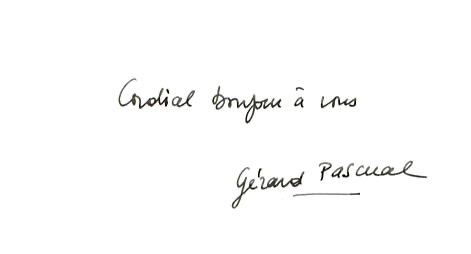 Cordial bonjour à vous
Gérard Pascual